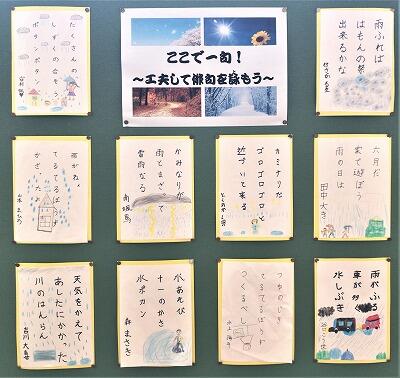 ここで一句！
～工夫して俳句を詠もう～
雨ふれば
はもんの祭
出来るかな
たくさんの
しずくの合
ポタンポタン
六月だ
家で遊ぼう
雨の日は
田中大き
カミナリだ
ゴロゴロゴロと
近づいて来る
かみなりが
雨とまざって
雷雨なる
雨がねぇ
てるてるぼうず
かざったよ
山本まひろ
雨がふる
車が
水しぶき
つゆのじき
てるてるぼうず
つくるべし
水あそび
十一のかさ
水ポカン
森まさき
天気をかえて
あしたにかかった
川のはんらん
吉川